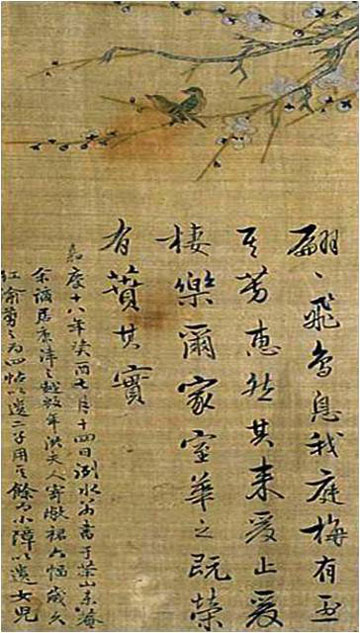 翩〻飛鳥息我庭梅有烈
其芳惠然其来爰止爰
棲樂爾家室華之既榮
有蕡其實
嘉慶十八年癸酉七月十四日洌水翁書于茶山東菴
余謫居康津之越數年洪夫人寄敝裙六幅歲久
紅渝剪之為四帖以遺二子用其餘為小障以遺女兒